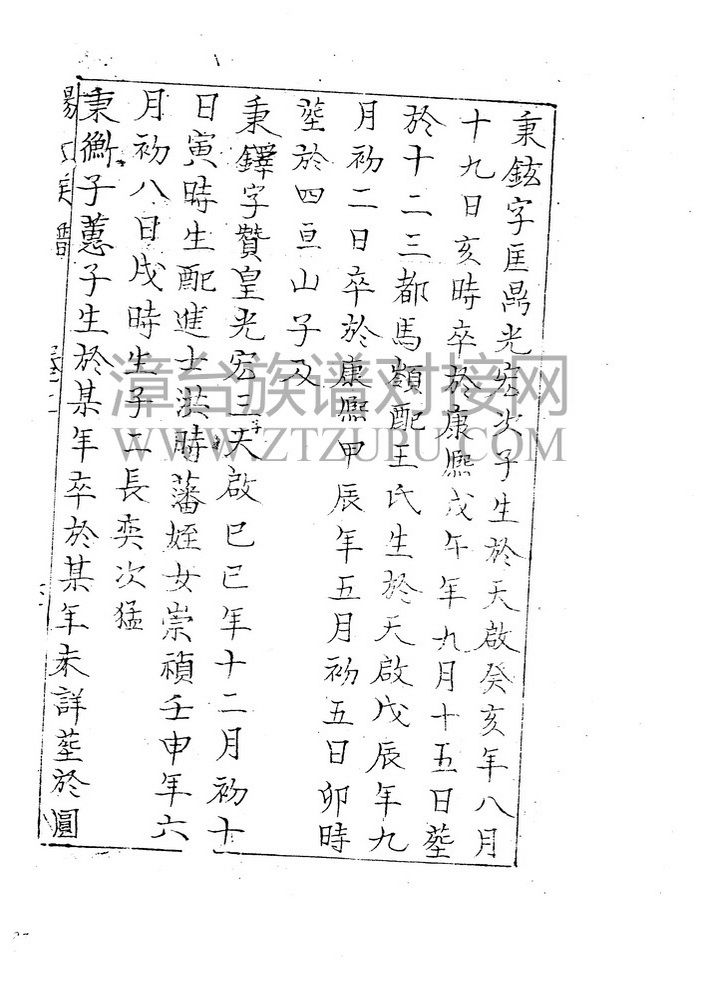 秉鉉字匡鼎光宏次子生於天啟癸亥年八月
十九日亥時卒於康熙戊午年九月十五日塟
於十二三都馬嶺配王氏生於天啟戊辰年九
月初二日卒於康熈甲辰年五月初五日卯時
塟於四亘山子及
秉鐸字贊皇光宏三子天啟巳巳年十二月初十
日寅時生配進士洪時蕃姪女崇禎壬申年六
月初八日戌時生子二長奕次猛
秉衡子蕙子生於某年卒於某年未詳塟於圓
漳台族谱对接网
WWW.ZTZUPU.COM